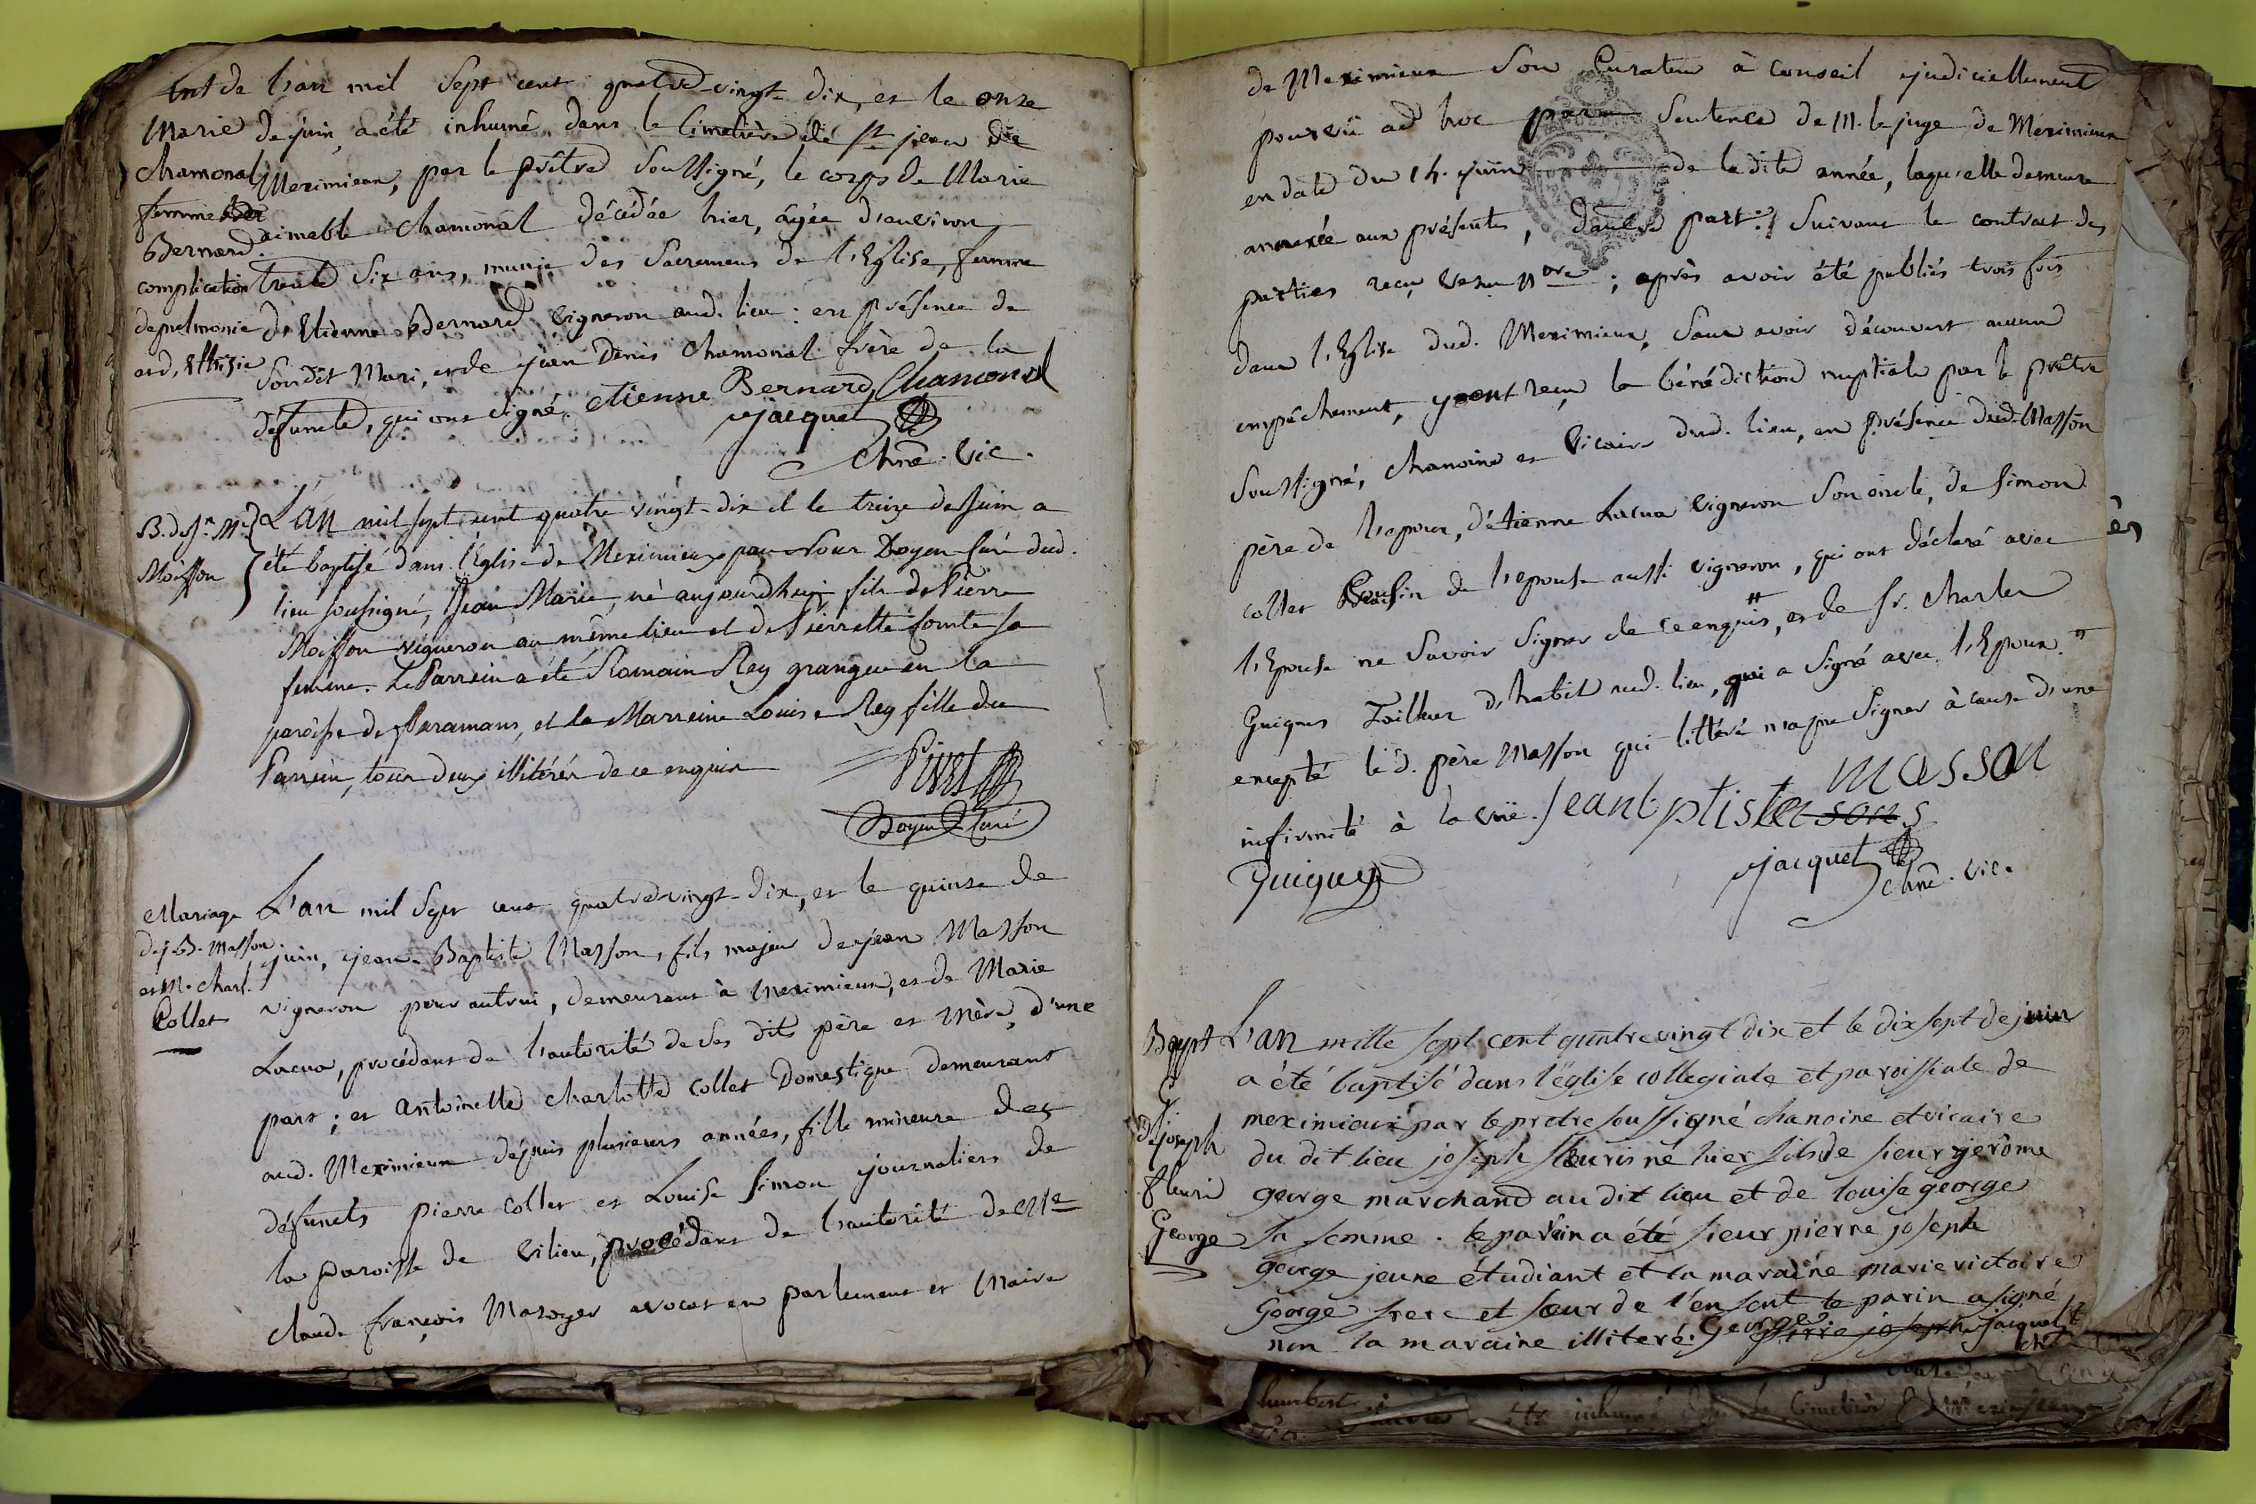 Ent de L'an mil sept cent quatre-vingt-dix, et le onze
Marie de juin, a été inhumé dans le Cimetière dé St jean de
chamonal Meximieux, par le prêtre soussigné, le corps de Marie
femme aimable chamonal décédée hier, âgée d'environ
Bernard.
complication trente six ans, munie des Sacremens de l'Eglise, femme
de pulmonie d'Etienne Bernard vigneron aud. lieu : en présence de
et d'Ethisie Son dit Mari, et de jean Denis Chamonal frère de la
défunte, qui ont signé. etienne Bernard Chamonal
jacquet
chne. vic.
B. de Jn. Mie L'an mil sept cent quatre vingt-dix et le treize de Juin a
Moisson été baptisé dans l'Eglise de Meximieux par Nous Doyen Curé dud.
lieu soussigné, Jean Marie, né aujourdhuy fils de Pierre
Moisson vigneron au même lieu et de Pierrette Comte sa
femme. Le Parrein a été Romain Rey granger en la
paroisse de Faramans, et la Marreine Louise Rey fille du
Parrein, tous deux illitérés de ce enquis
Pivet
Doyen Curé
Mariage L'an mil sept cent quatre-vingt-dix, et le quinze de
de j. B. Masson juin, jean-Baptiste Masson, fils majeur de jean Masson
et M. Charl.
Collet vigneron pour autrui, demeurant à Meximieux, et de Marie
Lacua, procédant de l'autorité de ses dits père et mère, d'une
part ; et antoinette charlotte collet Domestique demeurant
aud. Meximieux depuis plusieurs années, fille mineure des
défunts pierre collet et Louise simon journaliers de
la paroisse de vilieu, procédant de l'autorité de Me
claude françois Mazoyer avocat en parlement et Maire
de Meximieux son Curateur à conseil judiciellement
pourvû ad hoc par Sentence de M. le juge de Meximieux
en date du 14. juin de la dite année, laquelle demeure
annexée aux présentes, d'autre part : Suivant le contrat des
parties reçu ; après avoir été publiés trois fois
dans l'Eglise dud. Meximieux, sans avoir découvert aucun
empêchement, y ont reçu la bénédiction nuptiale par le prêtre
soussigné, chanoine et vicaire dud. lieu, en présence dud. Masson
père de l'epoux, d'étienne Lacua vigneron son oncle, de simon
collet Cousin de l'epouse aussi vigneron, qui ont déclaré avec
l'Epouse ne savoir signer de ce enquis, et de sr. charles
Guigues Tailleur d'habit aud. lieu, qui a signé avec l'Epoux.
excepté led. père Masson qui litteré n'a pu signer à cause d'une
infirmité à la vüe. jean bptiste masson
Guigues
jacquet
chne. vic.
Bapt L'an mille sept cent quatre vingt dix et le dix sept de juin
a été baptisé dans l'église collegiale et paroissiale de
meximieux par le pretre soussigné chanoine et vicaire
de joseph du dit lieu joseph fleuris né hier fils de sieur jerôme
fleuri george marchand au dit lieu et de louise george
George sa femme. le parain a été sieur pierre joseph
george jeune étudiant et la maraine marie victoire
George frere et soeur de l'enfent le parin a signé
non la maraine illiteré. George pierre joseph jacquet